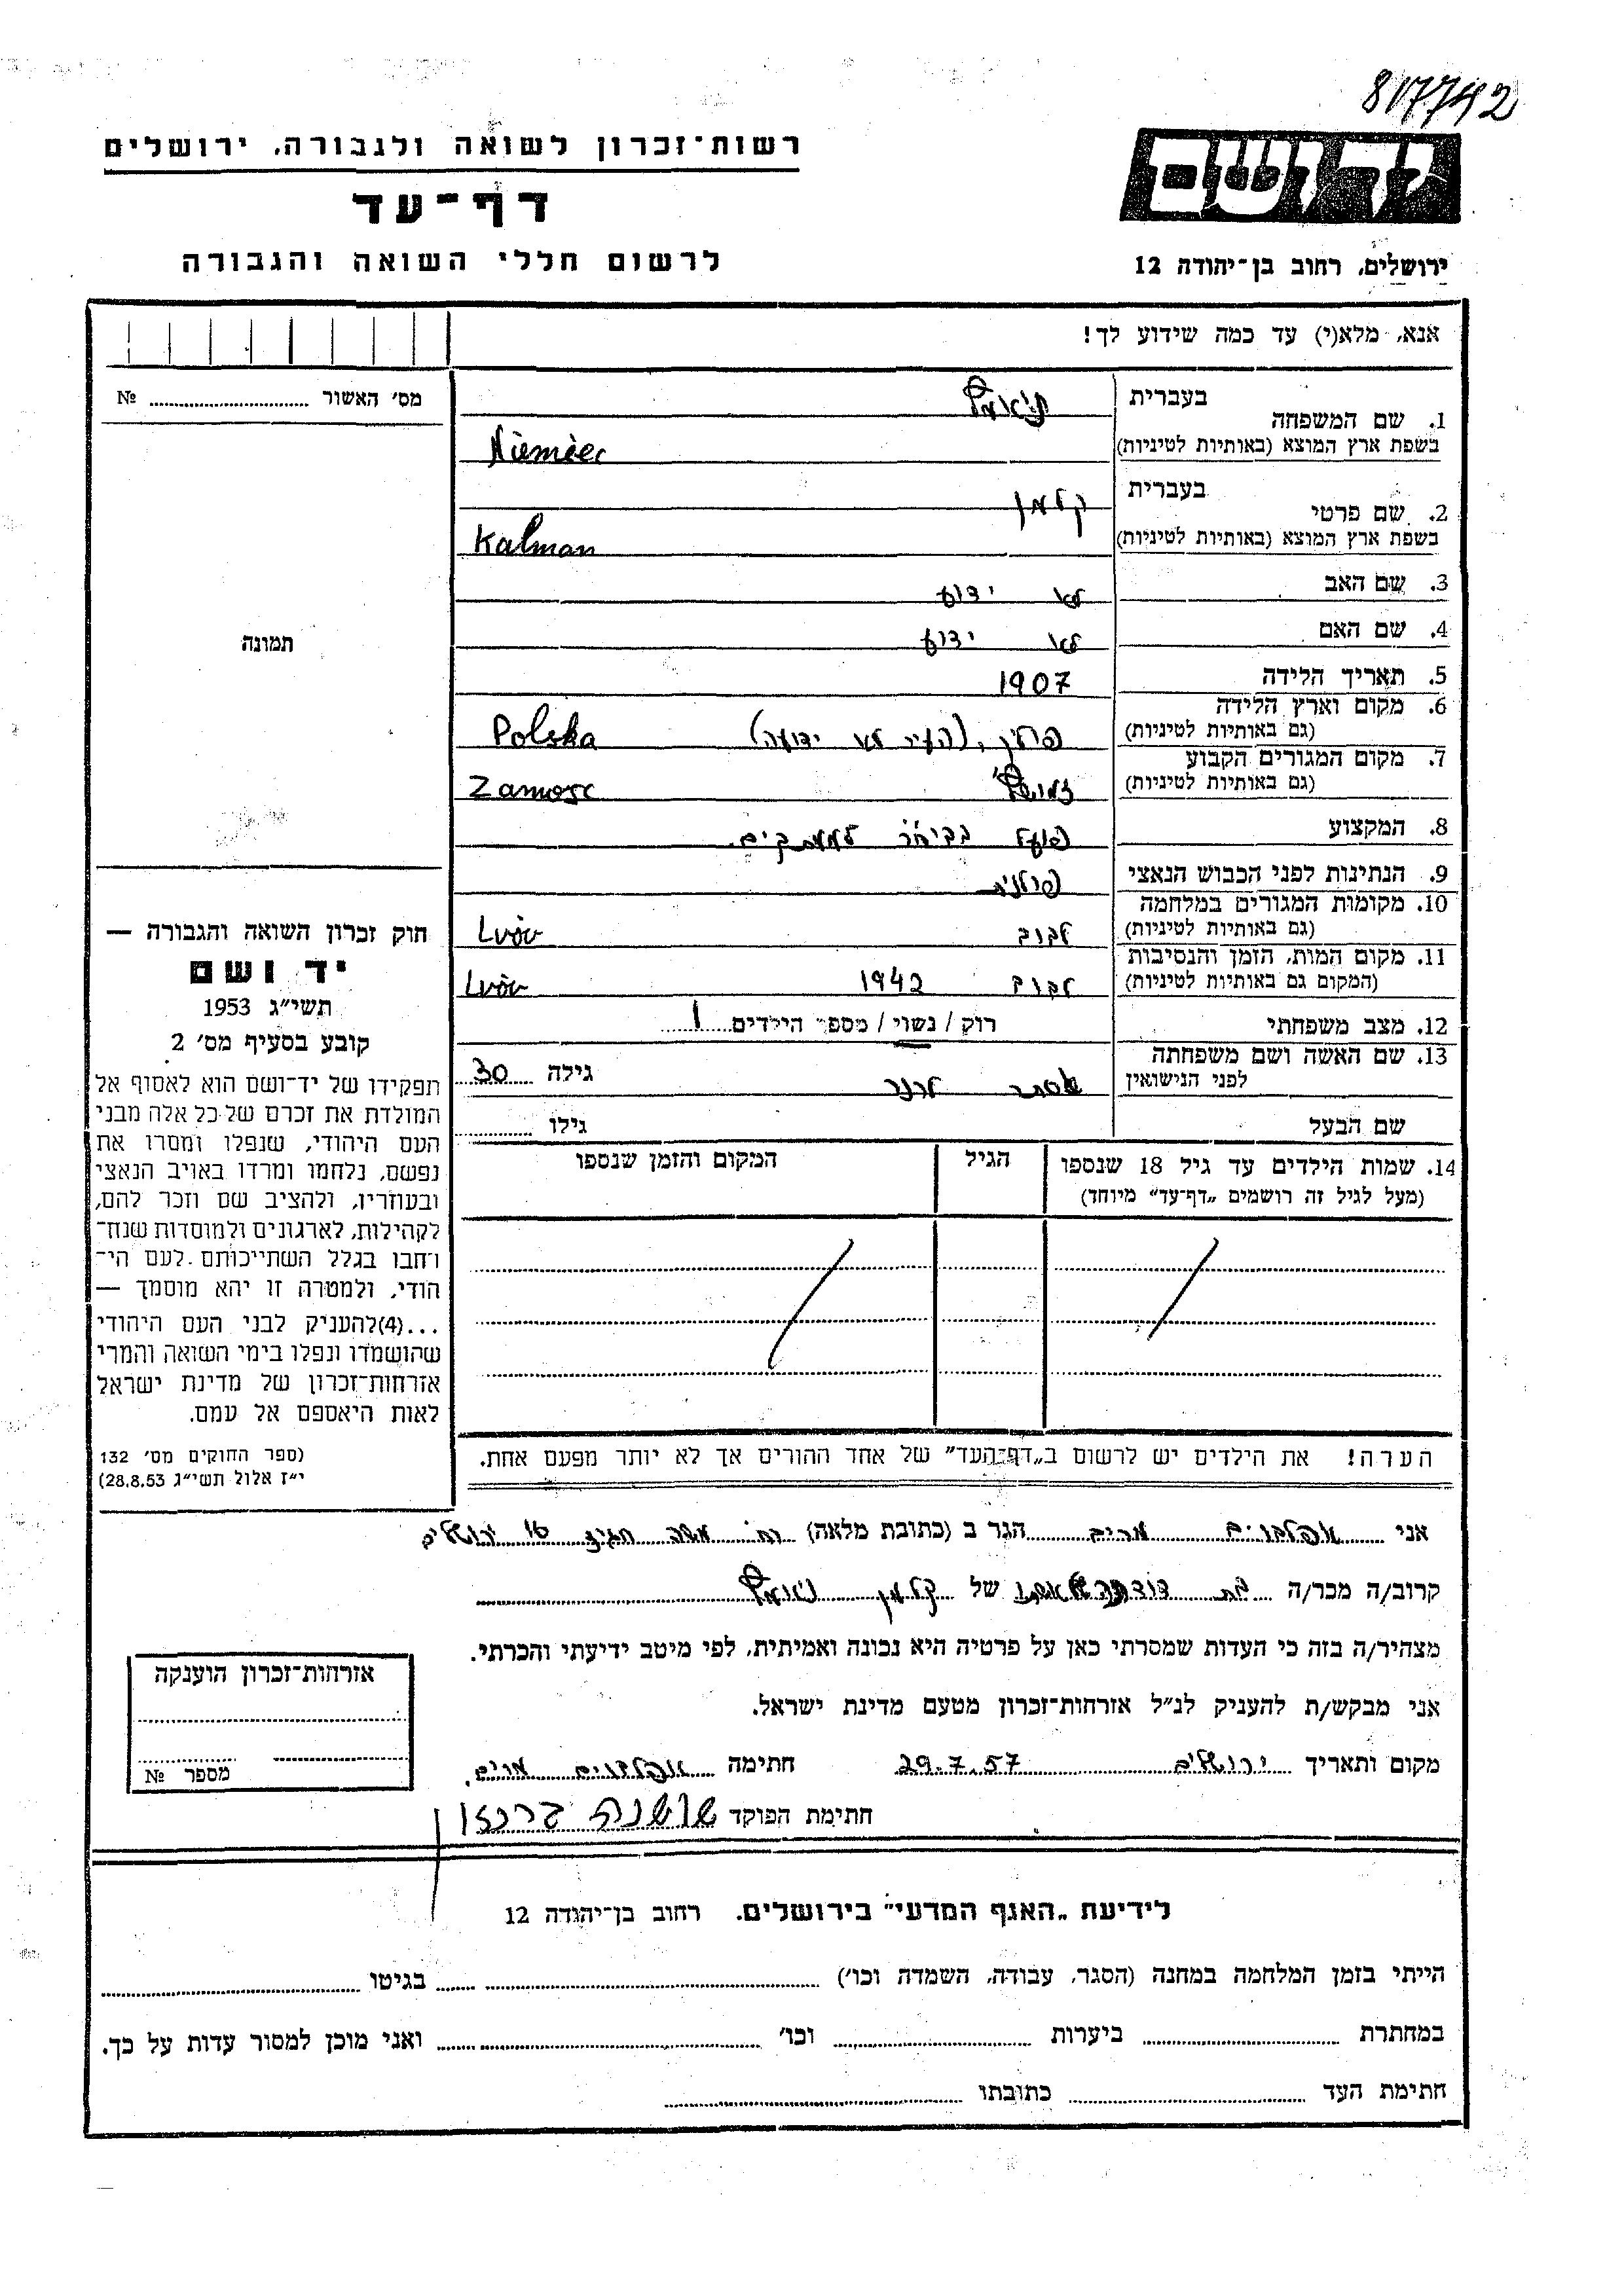 817742
רשות־זכרון לשואה ולגבורה, ירושלים
ידושם
דף־עד
לרשום חללי השואה והגבורה
ירושלים, רחוב בן־יהודה 12
אנא, מלא(י) עד כמה שידוע לך!
מס׳ האשור № 
1. שם המשפחה
בעברית
בשפת ארץ המוצא (באותיות לטיניות) Niemiec
2. שם פרטי
בעברית קלמן
בשפת ארץ המוצא (באותיות לטיניות) Kalman
3. שם האב לא ידוע
4. שם האם לא ידוע
תמונה
5. תאריך הלידה 1907
6. מקום וארץ הלידה
(גם באותיות לטיניות) פולין, (העיר לא ידועה) Polska
7. מקום המגורים הקבוע
(גם באותיות לטיניות) Zamosc
8. המקצוע פועל בביח״ר
9. הנתינות לפני הכבוש הנאצי פולנית
10. מקומות המגורים במלחמה
(גם באותיות לטיניות) לבוב Lvóv
11. מקום המות, הזמן והנסיבות
(המקום גם באותיות לטיניות) לבוב 1942 Lvóv
12. מצב משפחתי רוק / נשוי / מספר הילדים 1
13. שם האשה ושם משפחתה
לפני הנישואין אסתר לרנר גילה 30
שם הבעל גילו
14. שמות הילדים עד גיל 18 שנספו
(מעל לגיל זה רושמים „דף־עד” מיוחד)
הגיל
המקום והזמן שנספו
הערה! את הילדים יש לרשום ב„דף־העד” של אחד ההורים אך לא יותר מפעם אחת.
חוק זכרון השואה והגבורה —
יד ושם
תשי״ג 1953
קובע בסעיף מס׳ 2
תפקידו של יד־ושם הוא לאסוף אל
המולדת את זכרם של כל אלה מבני
העם היהודי, שנפלו ומסרו את
נפשם, נלחמו ומרדו באויב הנאצי
ובעוזריו, ולהציב שם וזכר להם,
לקהילות, לארגונים ולמוסדות שנח־
רחבו בגלל השתייכותם לעם הי־
הודי, ולמטרה זו יהא מוסמך —
...(4)להעניק לבני העם היהודי
שהושמדו ונפלו בימי השואה והמרי
אזרחות־זכרון של מדינת ישראל
לאות היאספם אל עמם.
(ספר החוקים מס׳ 132
י״ז אלול תשי״ג 28.8.53)
אני אפלבוים מרים הגר ב (כתובת מלאה) רח׳ משה חגיז 16 ירושלים
קרוב/ה מכר/ה בת של קלמן
מצהיר/ה בזה כי העדות שמסרתי כאן על פרטיה היא נכונה ואמיתית, לפי מיטב ידיעתי והכרתי.
אני מבקש/ת להעניק לנ״ל אזרחות־זכרון מטעם מדינת ישראל.
מקום ותאריך ירושלים 29.7.57 חתימה אפלבוים מרים.
חתימת הפוקד שושנה
אזרחות־זכרון הוענקה
מספר №
לידיעת „האגף המדעי” בירושלים, רחוב בן־יהודה 12
הייתי בזמן המלחמה במחנה (הסגר, עבודה, השמדה וכו׳) בגיטו
במחתרת ביערות וכו׳ ואני מוכן למסור עדות על כך.
חתימת העד כתובתו